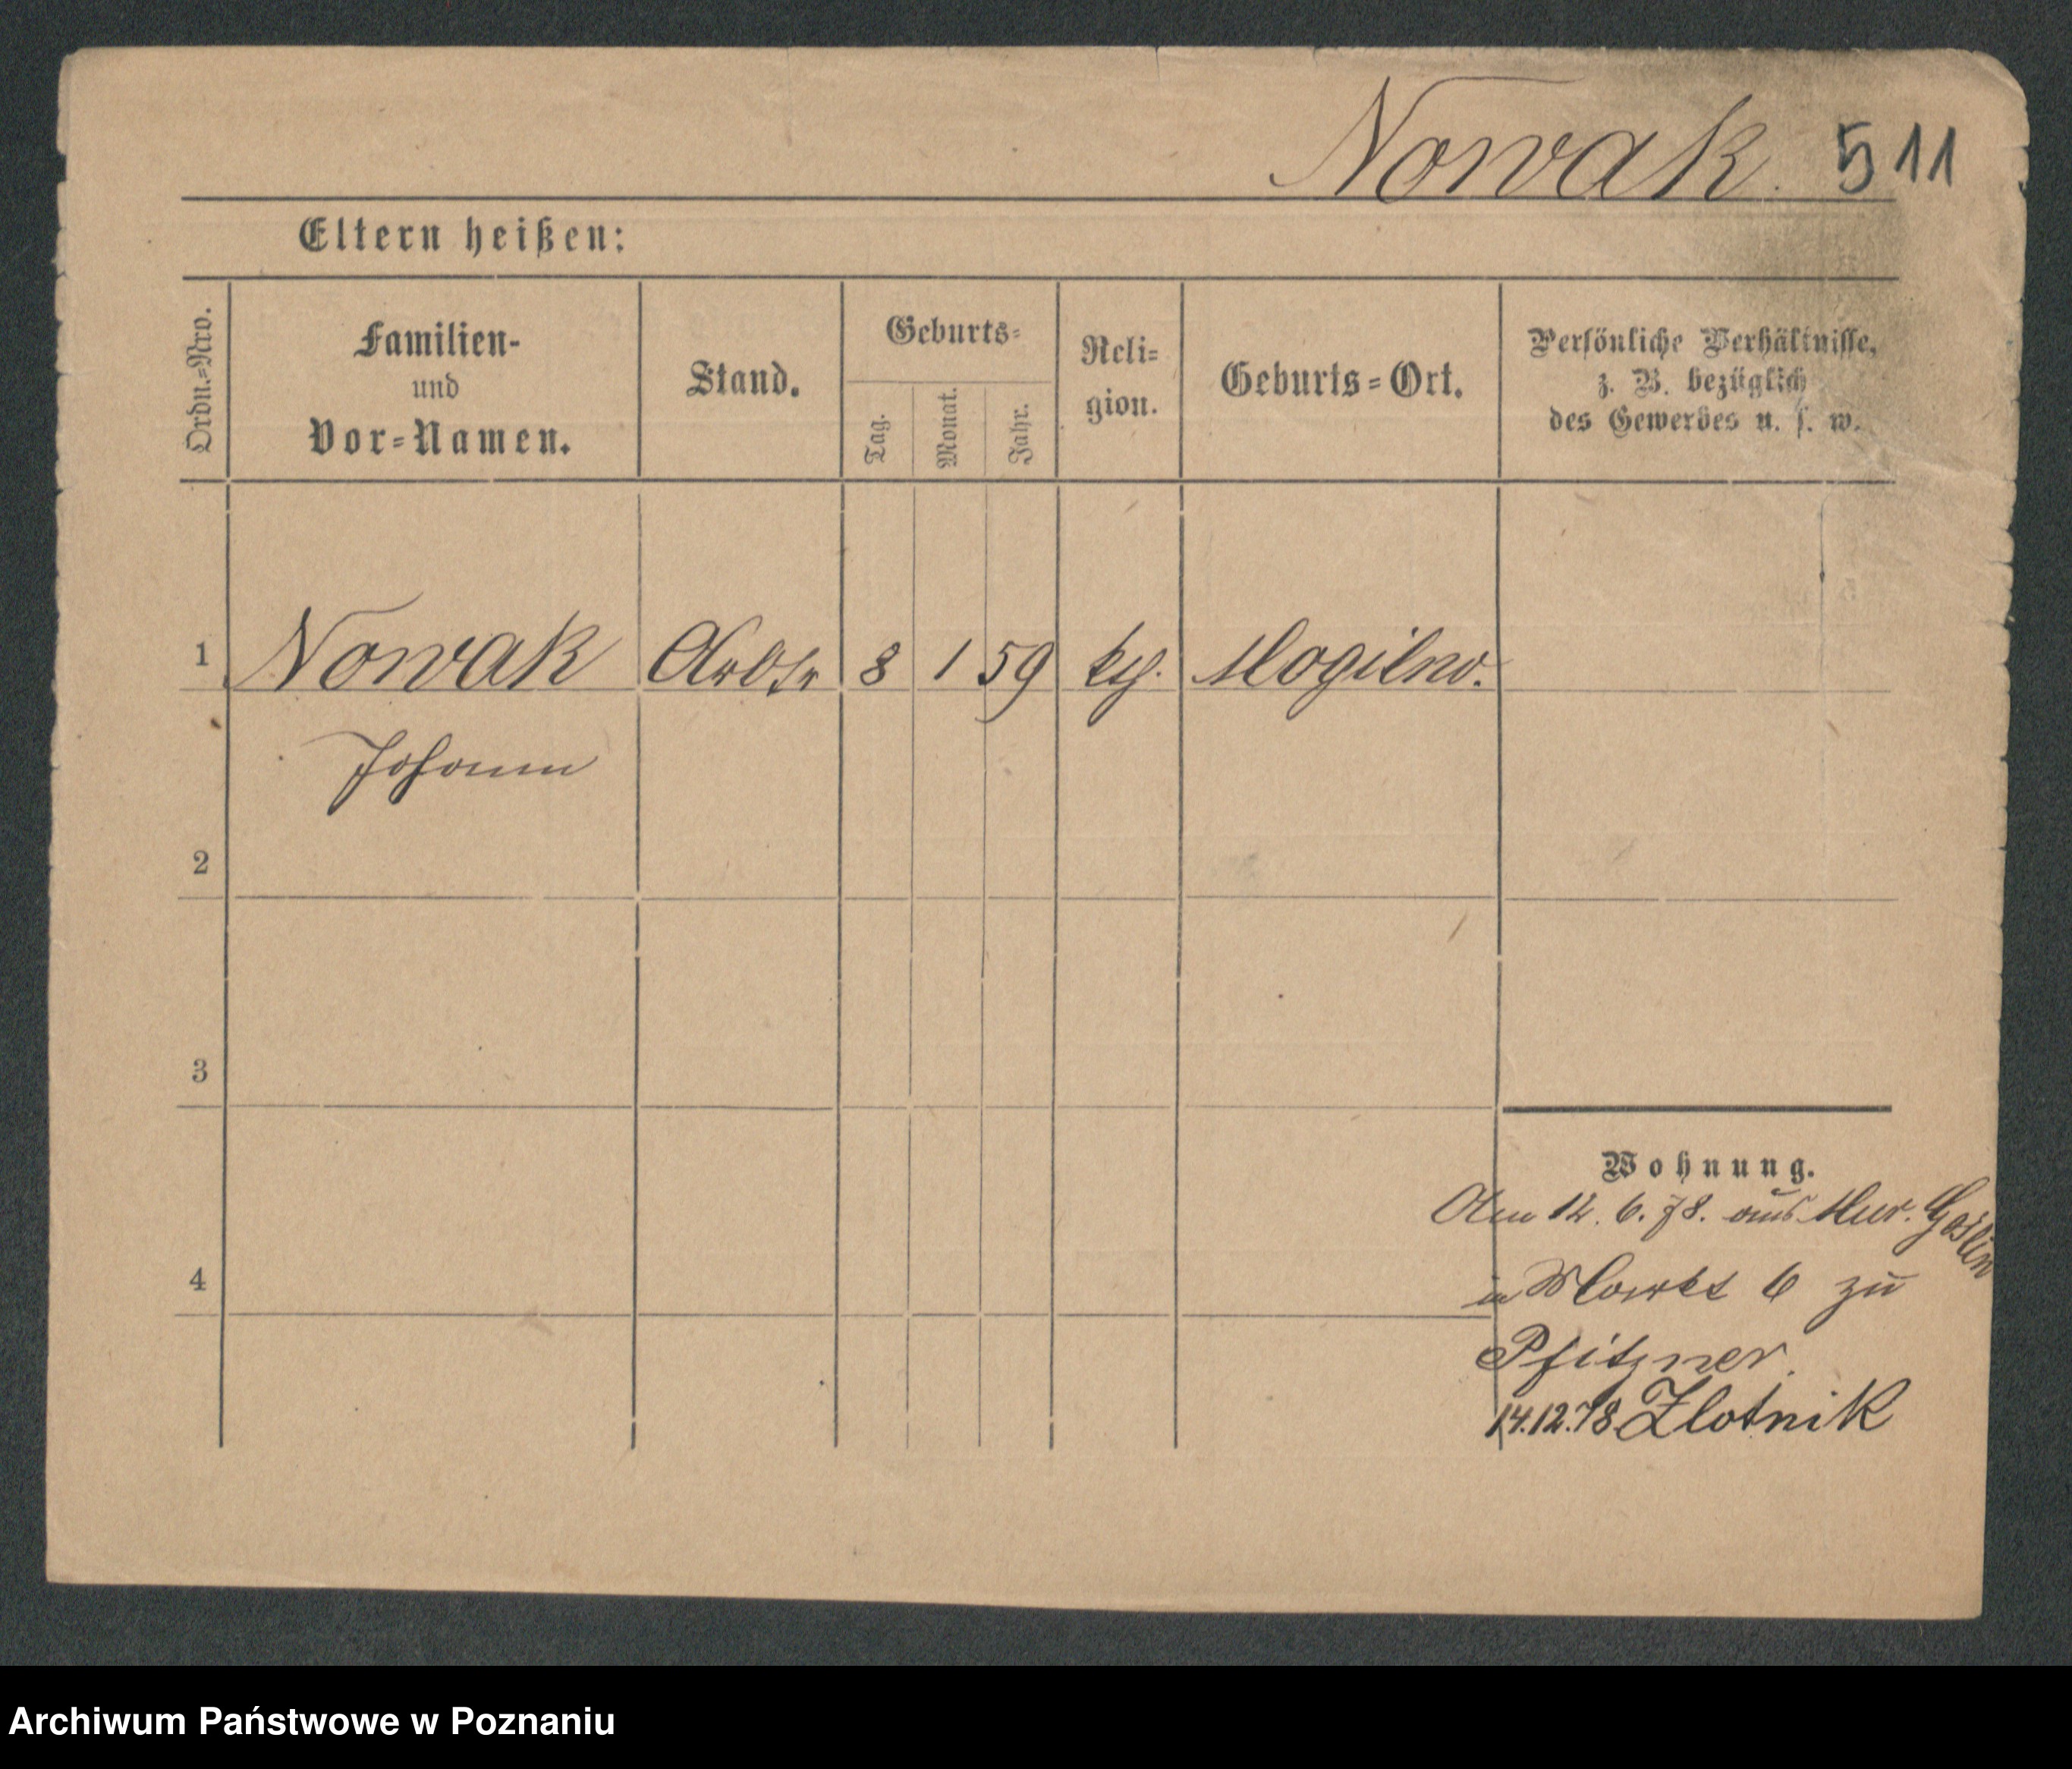 Nowak. 511
Eltern heißen:
Ordn.=Nro.
Familien-
und
Vor=Namen.
Stand.
Geburts=
Tag.
Monat.
Jahr.
Reli=
gion.
Geburts=Ort.
Persönliche Verhältnisse,
z. B. bezüglich
des Gewerbes u. s. w.
1 Nowak Arbtr 8 1 59 kth. Mogilno.
Johann
2
3
4
Wohnung.
12. 6. 78. aus Mur. Goslin
in Markt 6 zu
Pfitzner.
14.12.78 Zlotnik
Archiwum Państwowe w Poznaniu